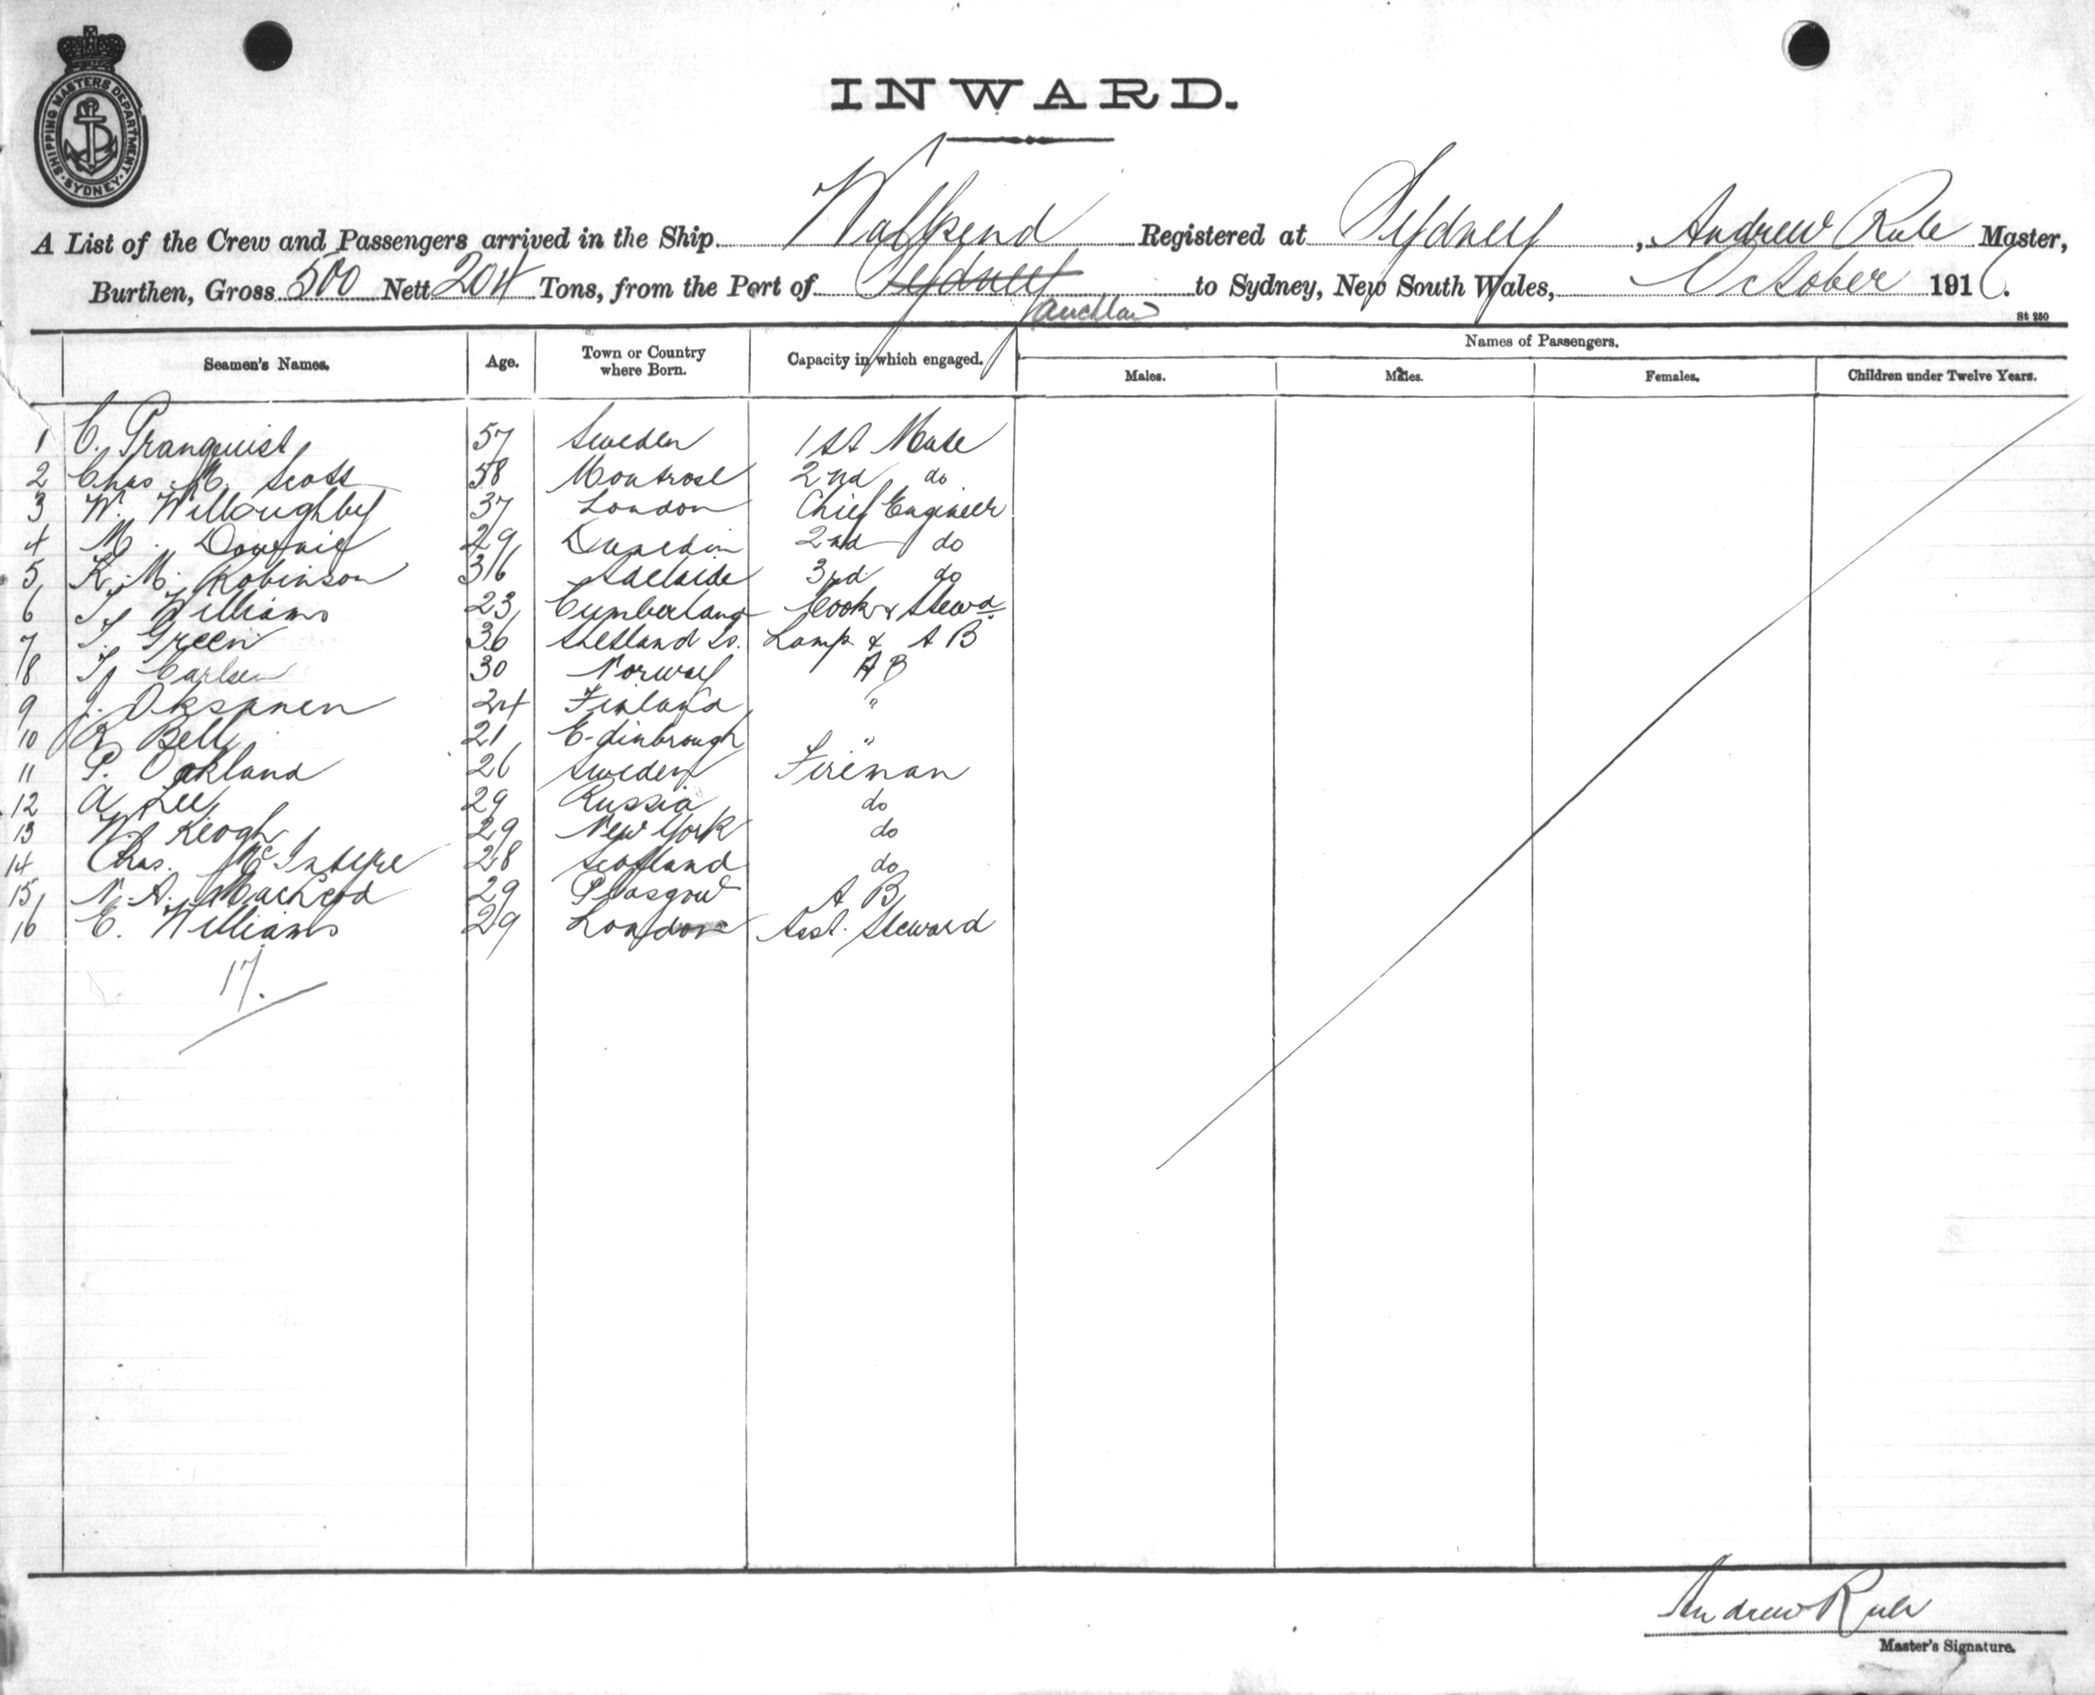 SHIPPING MASTERS DEPARTMENT
SYDNEY
INWARD.
A List of the Crew and Passengers arrived in the Ship Wallsend Registered at Sydney, Andrew Rule Master,
Burthen, Gross 500 Nett 204 Tons, from the Port of Sydney to Sydney, New South Wales, October 1916.
St 250
Seamen's Names. Age. Town or Country where Born. Capacity in which engaged. Names of Passengers.
Males. Males. Females. Children under Twelve Years.
1 C. Granquist 57 Sweden 1st Mate
2 Chas. M. Scott 58 Montrose 2nd do
3 W. Willoughby 37 London Chief Engineer
4 M. Downie 29 Dunedin 2nd do
5 K. M. Robinson 36 Adelaide 3rd do
6 Williams 23 Cumberland Cook & Stewd
7 T. Green 36 Shetland Is. Lamp & A B
8 Carlsen 30 Norway A B
9 J. Oksanen 24 Finland "
10 R Bell 21 Edinbrough "
11 P. Oakland 26 Sweden Fireman
12 A Lee 29 Russia do
13 W. Keogh 29 New York do
14 Chas. McIntyre 28 Scotland do
15 N. A. MacLeod 29 Glasgow A B
16 E. Williams 29 London Asst. Steward
17.
Andrew Rule
Master's Signature.